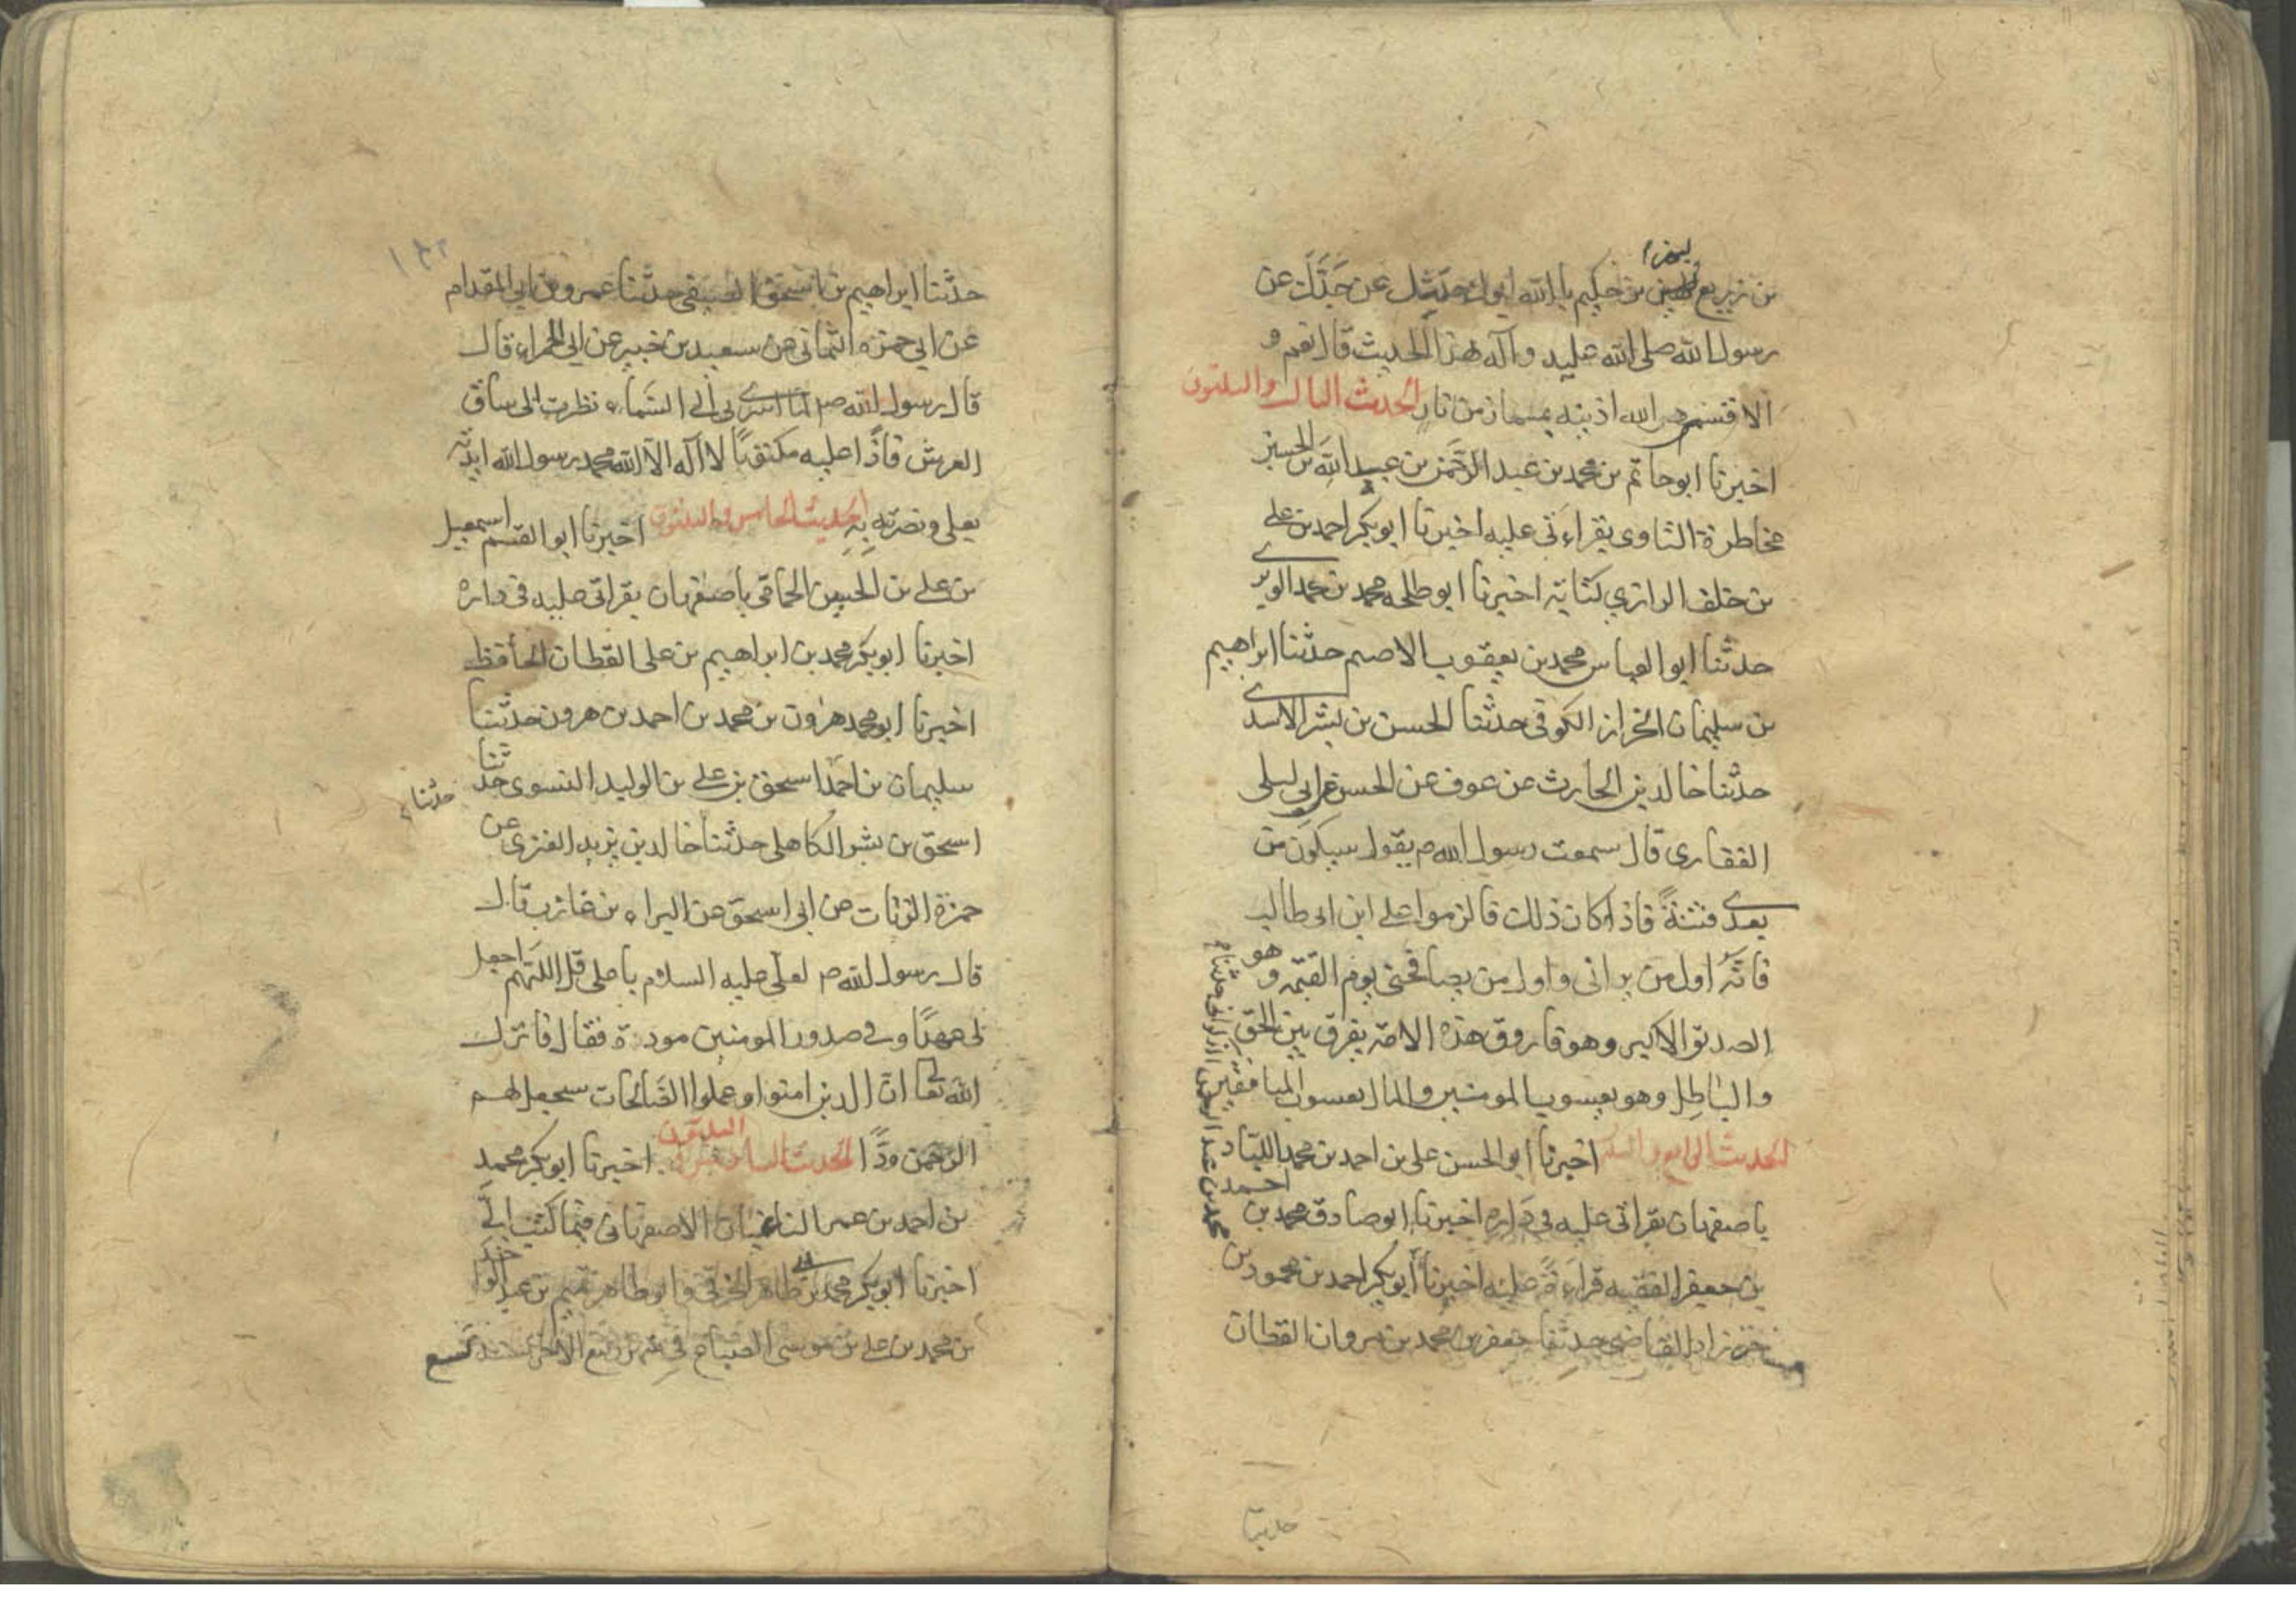 لبهز ا
بن زريع لبهز بن حكيم بالله ابوك حدثك عن جدك عن
رسول الله صلى الله عليه وآله هذا الحديث قال نعم و
الا فقسم الله اذنيه بمسمار من نار الحدث الثالث والثلثون
اخبرنا ابوحاتم بن محمد بن عبد الرحمن بن عبيد الله بن الحسين
مخاطرة الثاوى بقراءتى عليه اخبرنا ابوبكر احمد بن على
بن خلف الرازي كتابة اخبرنا ابو طلحه محمد بن محمد الوبرى
حدثنا ابو العباس محمد بن يعقوب الاصم حدثنا ابراهيم
بن سليمان الخزاز الكوفى حدثنا الحسن بن بشر الاسدى
حدثنا خالد بن الحارث عن عوف عن الحسن عن ابى ليلى
الغفارى قال سمعت رسول الله ص يقول سيكون من
بعدى فتنةً فاذا كان ذلك فالزموا على ابن ابى طالب
فانه اول من يرانى واول من يصافحنى يوم القيمة و هو
الصديق الاكبر وهو فاروق هذه الامة يفرق بين الحق
والباطل وهو يعسوب المومنين والمال يعسوب المنافقين
الحديث الرابع والثلثون اخبرنا ابو الحسن على بن احمد بن محمد اللباد
باصفهان بقراتى عليه فى داره اخبرنا ابو صادق محمد بن احمد
بن جعفر الفقيه قراءةً عليه اخبرنا ابوبكر احمد بن محمود بن
خرزاد القاضى حدثنا جعفر بن محمد بن مروان القطان
محمد بن عبد الرحمن حدثنا
حدثنا
١٤٢
حدثنا ابراهيم بن اسحق الصيفى حدثنا عمرو بن ابى المقدام
عن ابي حمزه الثمانى عن سعيد بن جبير عن ابى الحمراء قال
قال رسول الله ص لما اسرى بى الى السماء نظرت الى ساق
العرش فاذا عليه مكتوبًا لا اله الا الله محمد رسول الله ايدته
بعلى ونصرته به الحديث الخامس والثلثون اخبرنا ابو القسم اسمعيل
بن على بن الحسين الحمامى باصفهان بقراتى عليه فى داره
اخبرنا ابوبكر محمد بن ابراهيم بن على القطان الحافظ
اخبرنا ابو محمد هرون بن محمد بن احمد بن هرون حدثنا
سليمان بن احمد اسحق بن على بن الوليد النسوى حدثنا
حدثنا
اسحق بن بشر الكاهلى حدثنا خالد بن يزيد العنزى عن
حمزة الزيات عن ابى اسحق عن البراء بن عازب قال
قال رسول الله ص لعلى عليه السلام يا على قل اللهم اجعل
لى عهدًا وفى صدور المومنين مودة فقال فانزل
الله تعالى ان الذين امنوا وعملوا الصالحات سيجعل لهم
الرحمن ودًا الحديث السادس الثلثون اخبرنا ابوبكر محمد
بن احمد بن عمر الباغبان الاصفهانى فيما كتب الى
اخبرنا ابوبكر محمد بن طاهر الخرقى وابو طاهر تميم بن عبد الواحد
بن محمد بن على بن موسى الصباح فى شهر ربيع الاخر سنة تسع